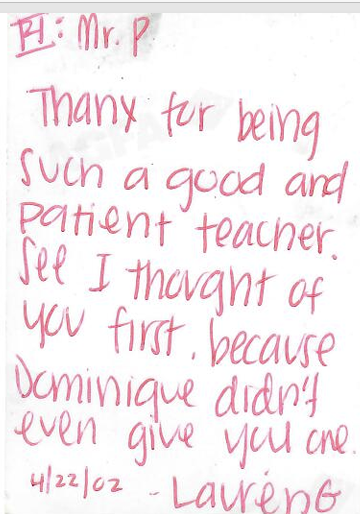 : Mr. P
Thanx for being
such a good and
patient teacher.
See I thought of
you first, because
Dominique didn't
even give you one.
4/22/02 - Lauren G